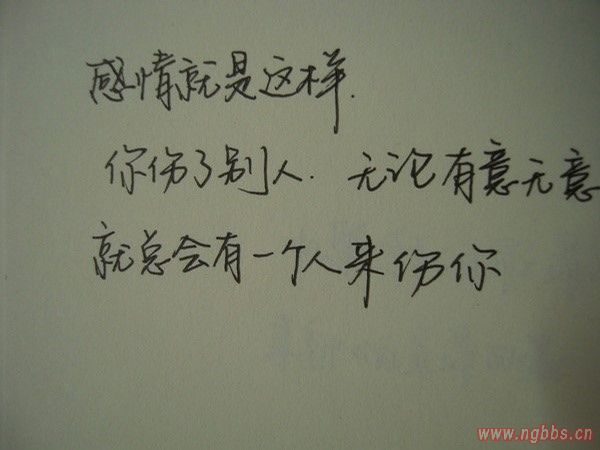 感情就是这样.
你伤了别人.无论有意无意
就总会有一个人来伤你
www.ngbbs.cn